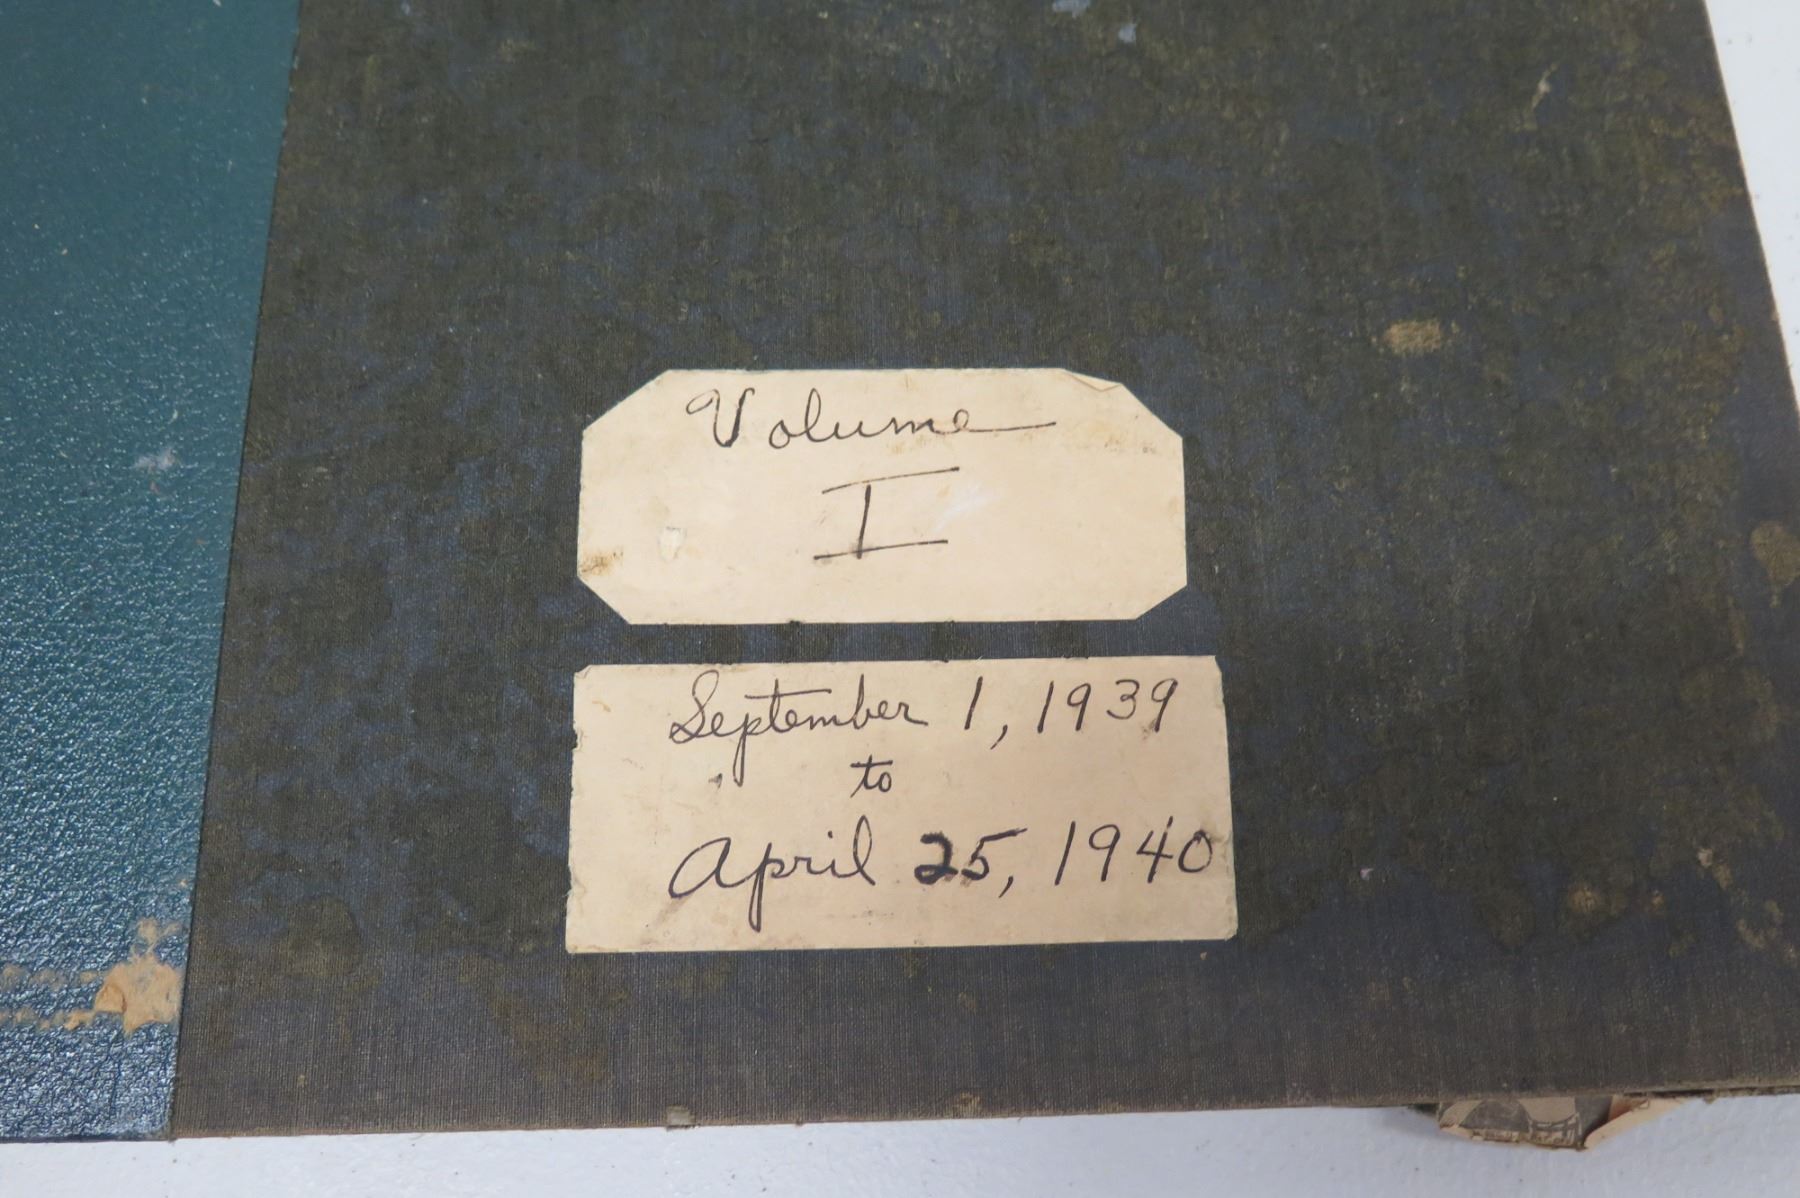 Volume
I
September 1, 1939
to
April 25, 1940